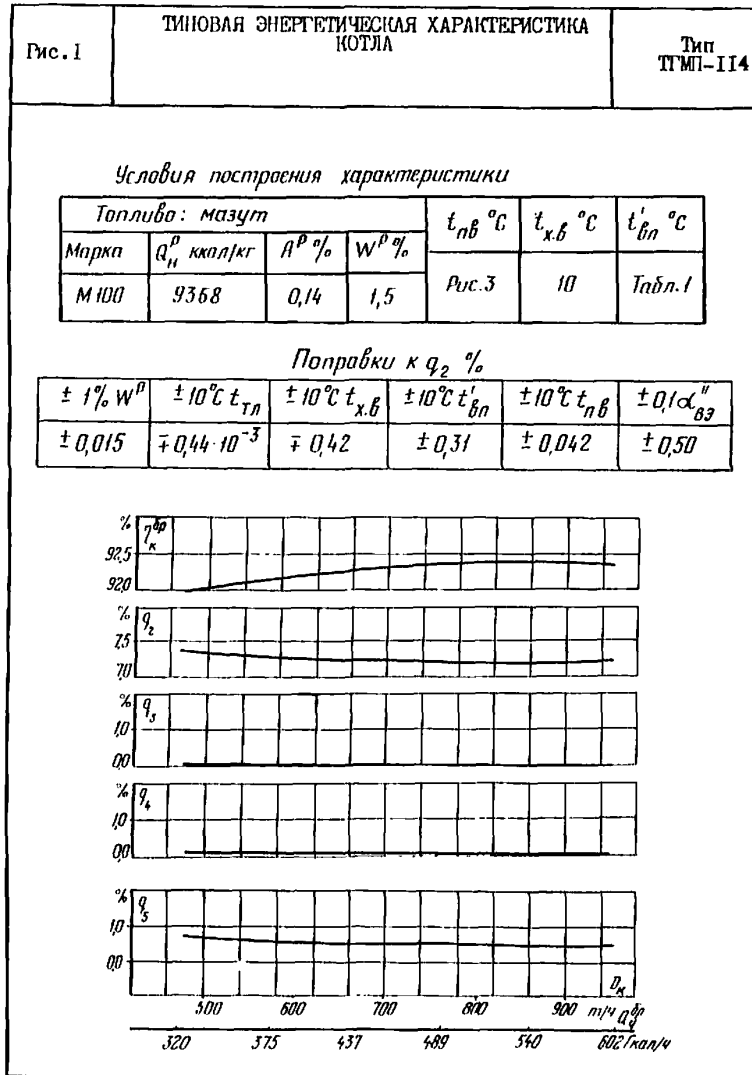 Рис.I
ТИПОВАЯ ЭНЕРГЕТИЧЕСКАЯ ХАРАКТЕРИСТИКА
КОТЛА
Тип
ТГМП-II4
Условия построения характеристики
Топливо: мазут
t_пв °C t_х.в °C t'_вп °C
Марка Q_н^р ккал/кг A^р % W^р %
М100 9368 0,14 1,5 Рис.3 10 Табл.1
Поправки к q_2 %
± 1% W^р ±10°C t_тл ±10°C t_х.в ±10°C t'_вп ±10°C t_пв ±0,1α''_вэ
±0,015 ∓0,44·10^-3 ∓ 0,42 ±0,31 ±0,042 ±0,50
% η_к^бр
92,5
92,0
% q_2
7,5
7,0
% q_3
1,0
0,0
% q_4
1,0
0,0
% q_5
1,0
0,0
D_к
500 600 700 800 900 т/ч Q_к^бр
320 375 437 489 540 602 Гкал/ч